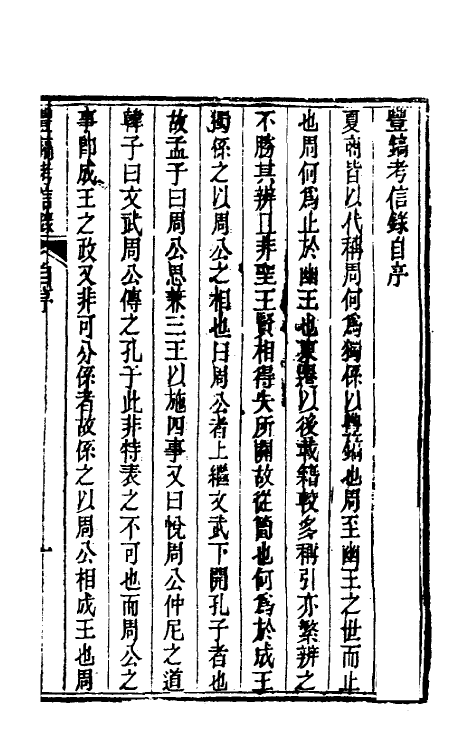 豐鎬考信錄自序
夏商皆以代稱周何爲獨係以豐鎬也周至幽王之世而止
也周何爲止於幽王也東遷以後載籍較多稱引亦繁辨之
不勝其辨且非聖王賢相得失所關故從簡也何爲於成王
獨係之以周公之相也曰周公者上繼文武下開孔子者也
故孟子曰周公思兼三王以施四事又曰悅周公仲尼之道
韓子曰文武周公傳之孔子此非特表之不可也而周公之
事卽成王之政又非可分係者故係之以周公相成王也周
豐鎬考信錄 自序 一